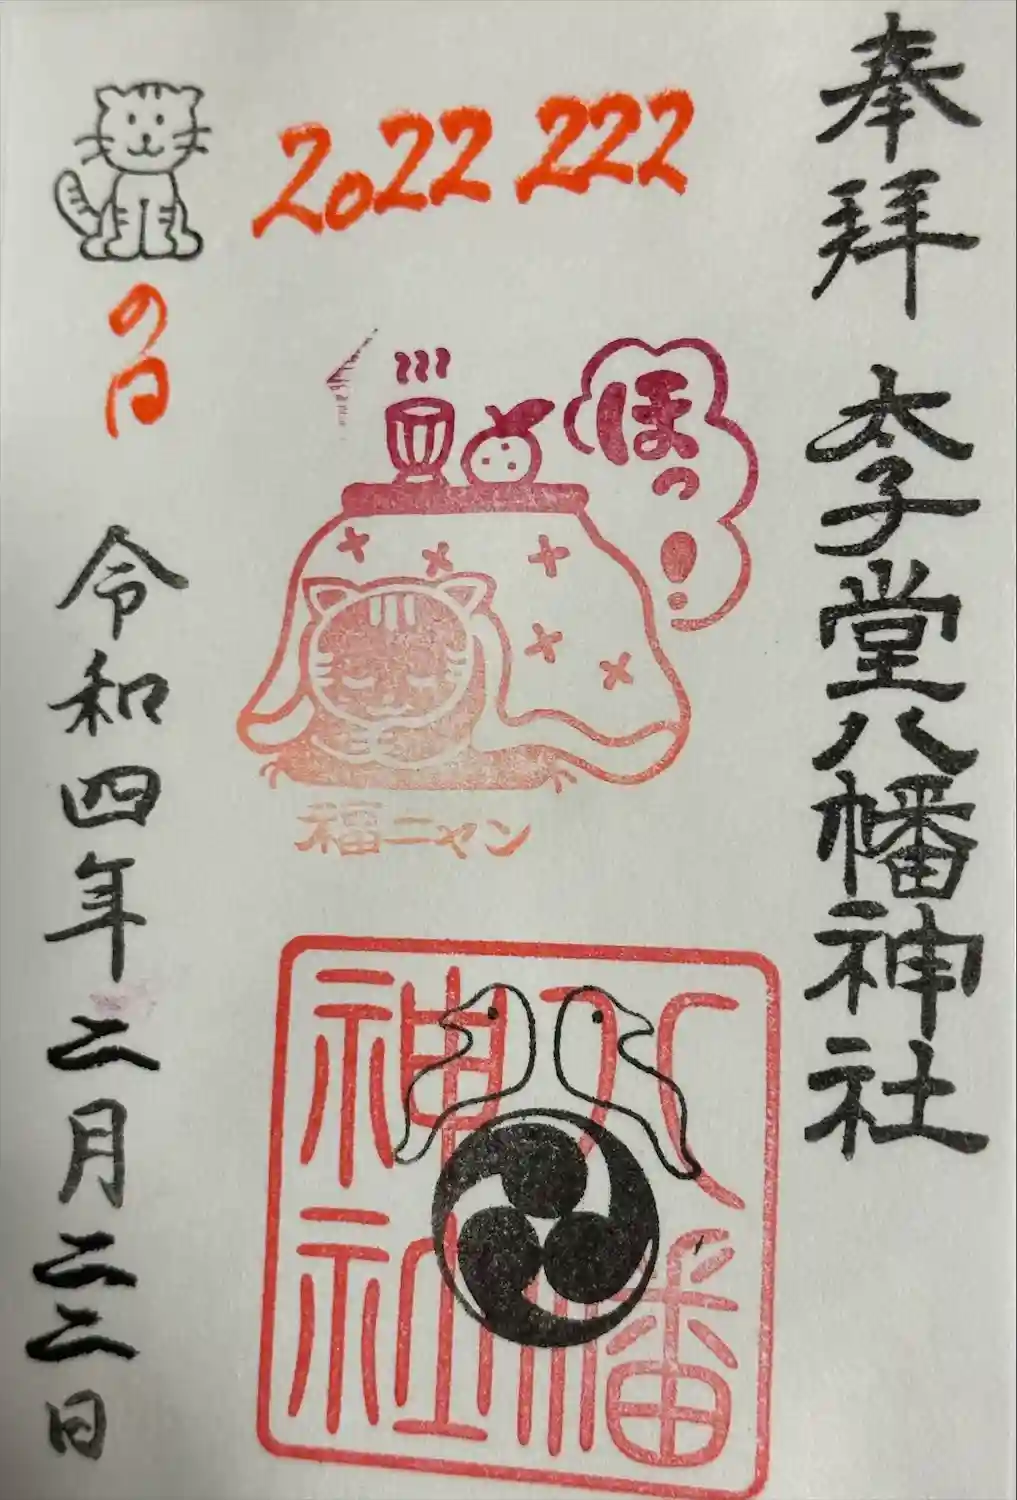 奉拝
太子堂八幡神社
2022 222
ほっ!
福ニャン
八幡
神社
の日
令和四年二月二二日